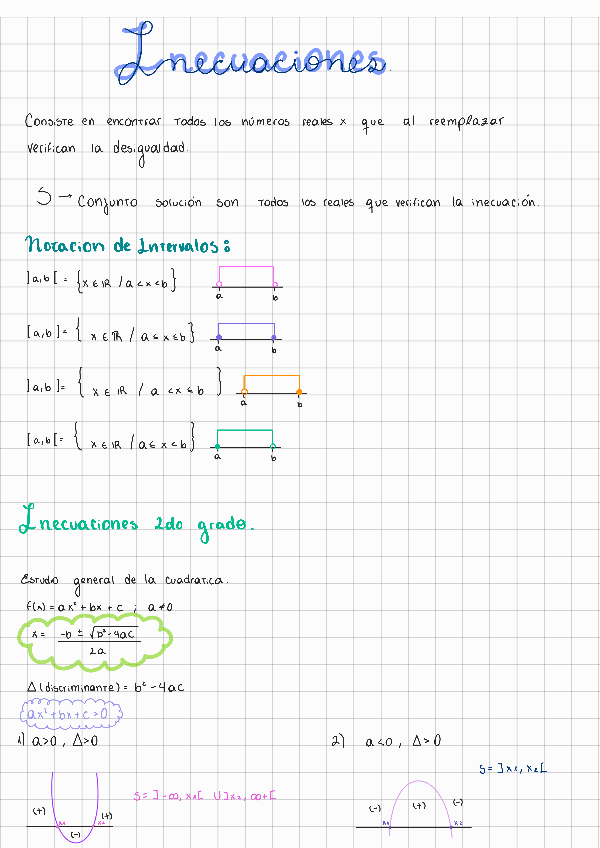 Inecuaciones.
Consiste en encontrar todos los números reales x que al reemplazar
verifican la desigualdad.
S → Conjunto solución son todos los reales que verifican la inecuación.
Notacion de Intervalos:
]a,b[ = {x ∈ IR / a < x < b}
a b
[a,b] = { x ∈ IR / a ≤ x ≤ b}
a b
]a,b] = { x ∈ IR / a < x ≤ b }
a b
[a,b[ = { x ∈ IR / a ≤ x < b}
a b
Inecuaciones 2do grado.
Estudio general de la cuadratica.
f(x) = ax² + bx + c ; a ≠ 0
x = -b ± √b² - 4ac
2a
Δ(discriminante) = b² - 4ac
ax² + bx + c > 0
1) a>0, Δ>0
2) a<0, Δ>0
S = ]-∞, x₁[ U ]x₂, ∞+[
(+) (+)
x₁ x₂
(-)
S = ]x₁, x₂[
(-) (+) (-)
x₁ x₂